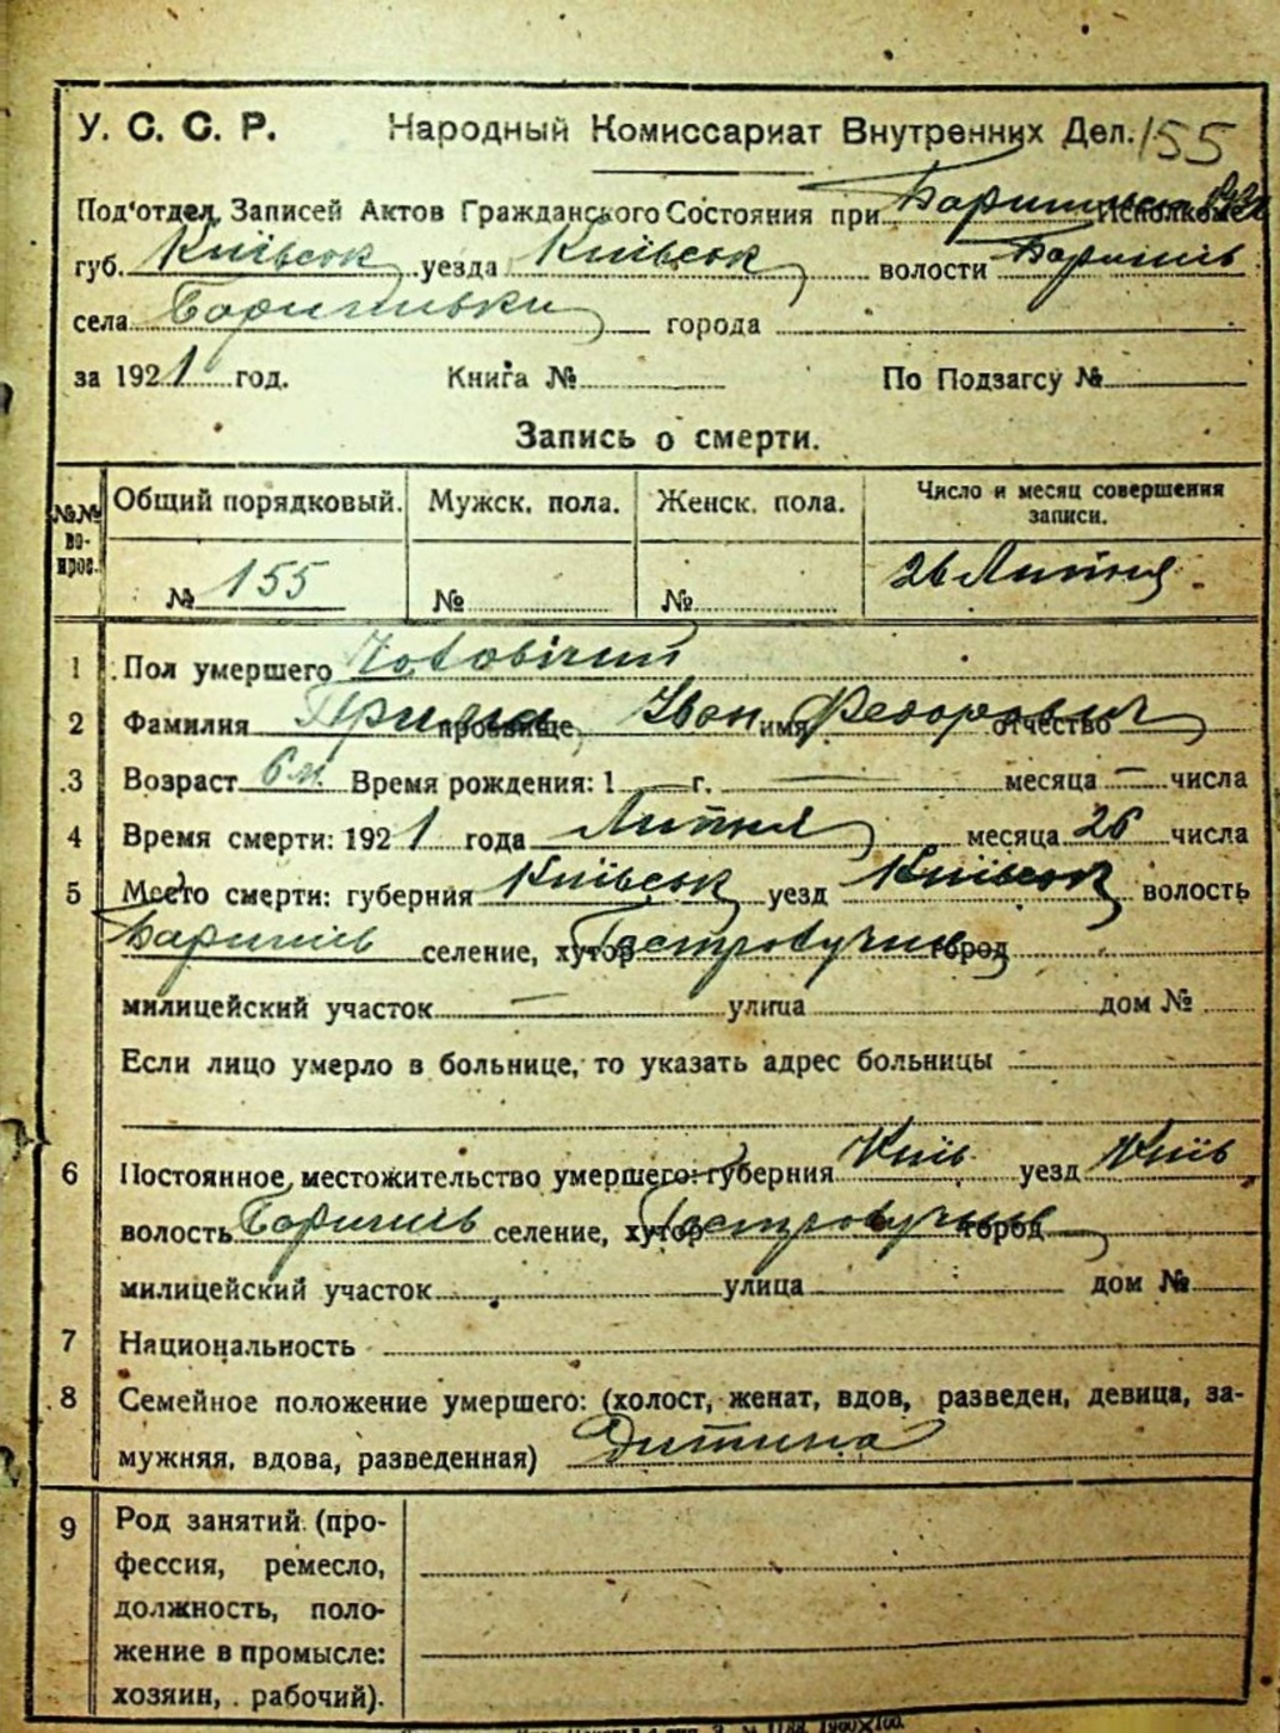 У. С. С. Р. Народный Комиссариат Внутренних Дел. 155
Под‘отдел Записей Актов Гражданского Состояния при Исполкоме
губ. Київськ уезда Київськ волости Баришів
села города
за 1921 год. Книга № По Подзагсу №
Запись о смерти.
№№ вопрос. Общий порядковый. Мужск. пола. Женск. пола. Число и месяц совершения записи.
№ 155 № № 26 Липня
1 Пол умершего Чоловічий
2 Фамилия прозвище, Іван имя Федорович отчество
3 Возраст 6 м. Время рождения: 1 — г. — месяца — числа
4 Время смерти: 1921 года Липня месяца 26 числа
5 Место смерти: губерния Київськ уезд Київськ волость
Баришів селение, хутор город
милицейский участок — улица дом №
Если лицо умерло в больнице, то указать адрес больницы
6 Постоянное местожительство умершего: губерния Київ уезд Київ
волость Баришів селение, хутор город
милицейский участок улица дом №
7 Национальность
8 Семейное положение умершего: (холост, женат, вдов, разведен, девица, за-
мужняя, вдова, разведенная) Дитина
9 Род занятий (про-
фессия, ремесло,
должность, поло-
жение в промысле:
хозяин, рабочий).